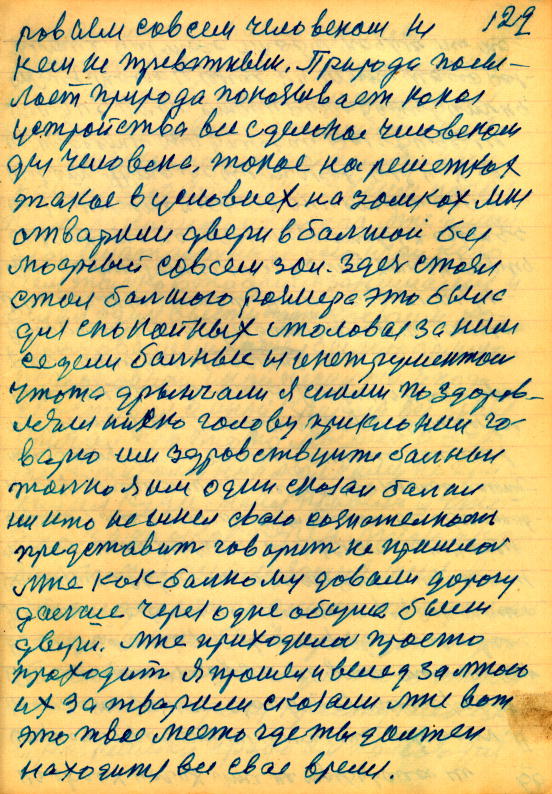 129
роваем совсем человеком и
кем не приватным. Природа посы-
лает природа показывает какая
устройства все сделано человеком
для человека, такое на решетках
такое в условиех на замках мне
отварили двери в балшой без
совсем зал. Здес стоял
стол балшого размера это была
для спокойных столовая за ним
седели балные и
чтота я сними поздоров-
голову приклонил го-
варю им здравствуйте балнои
толко я им один сказал балш
ни кто не
представит говорит не пришлос
мне как балному довали дорогу
далше через одне общие были
двери. мне приходилос просто
проходит я прошел и велед за мною
их затварили сказали мне вот
это твое место где ты должен
находится все свае время.